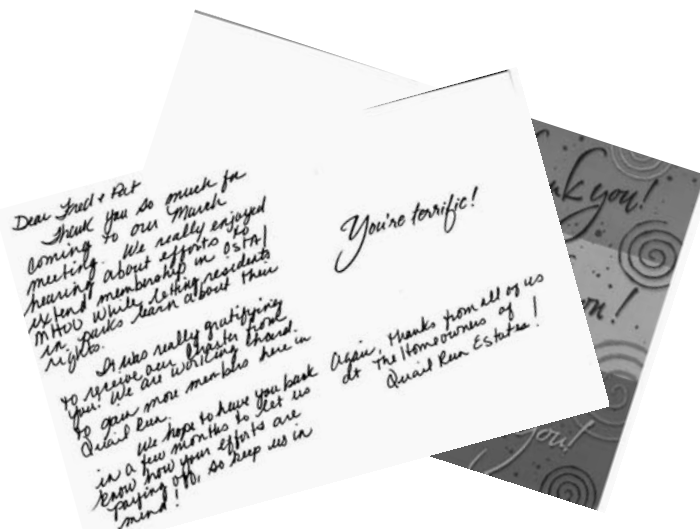 Dear Fred + Pat
Thank you so much for
coming to our March
meeting. We really enjoyed
hearing about efforts to
extend membership in OSTA/
MHOO while letting residents
in parks learn about their
rights.
It was really gratifying
to receive our charter from
you! We are working toward
to gain more members here in
Quail Run.
We hope to have you back
in a few months to let us
know how your efforts are
paying off, so keep us in
mind!
You're terrific!
Again, thanks from all of us
at the Homeowners of
Quail Run Estates!
you!
on!
you!